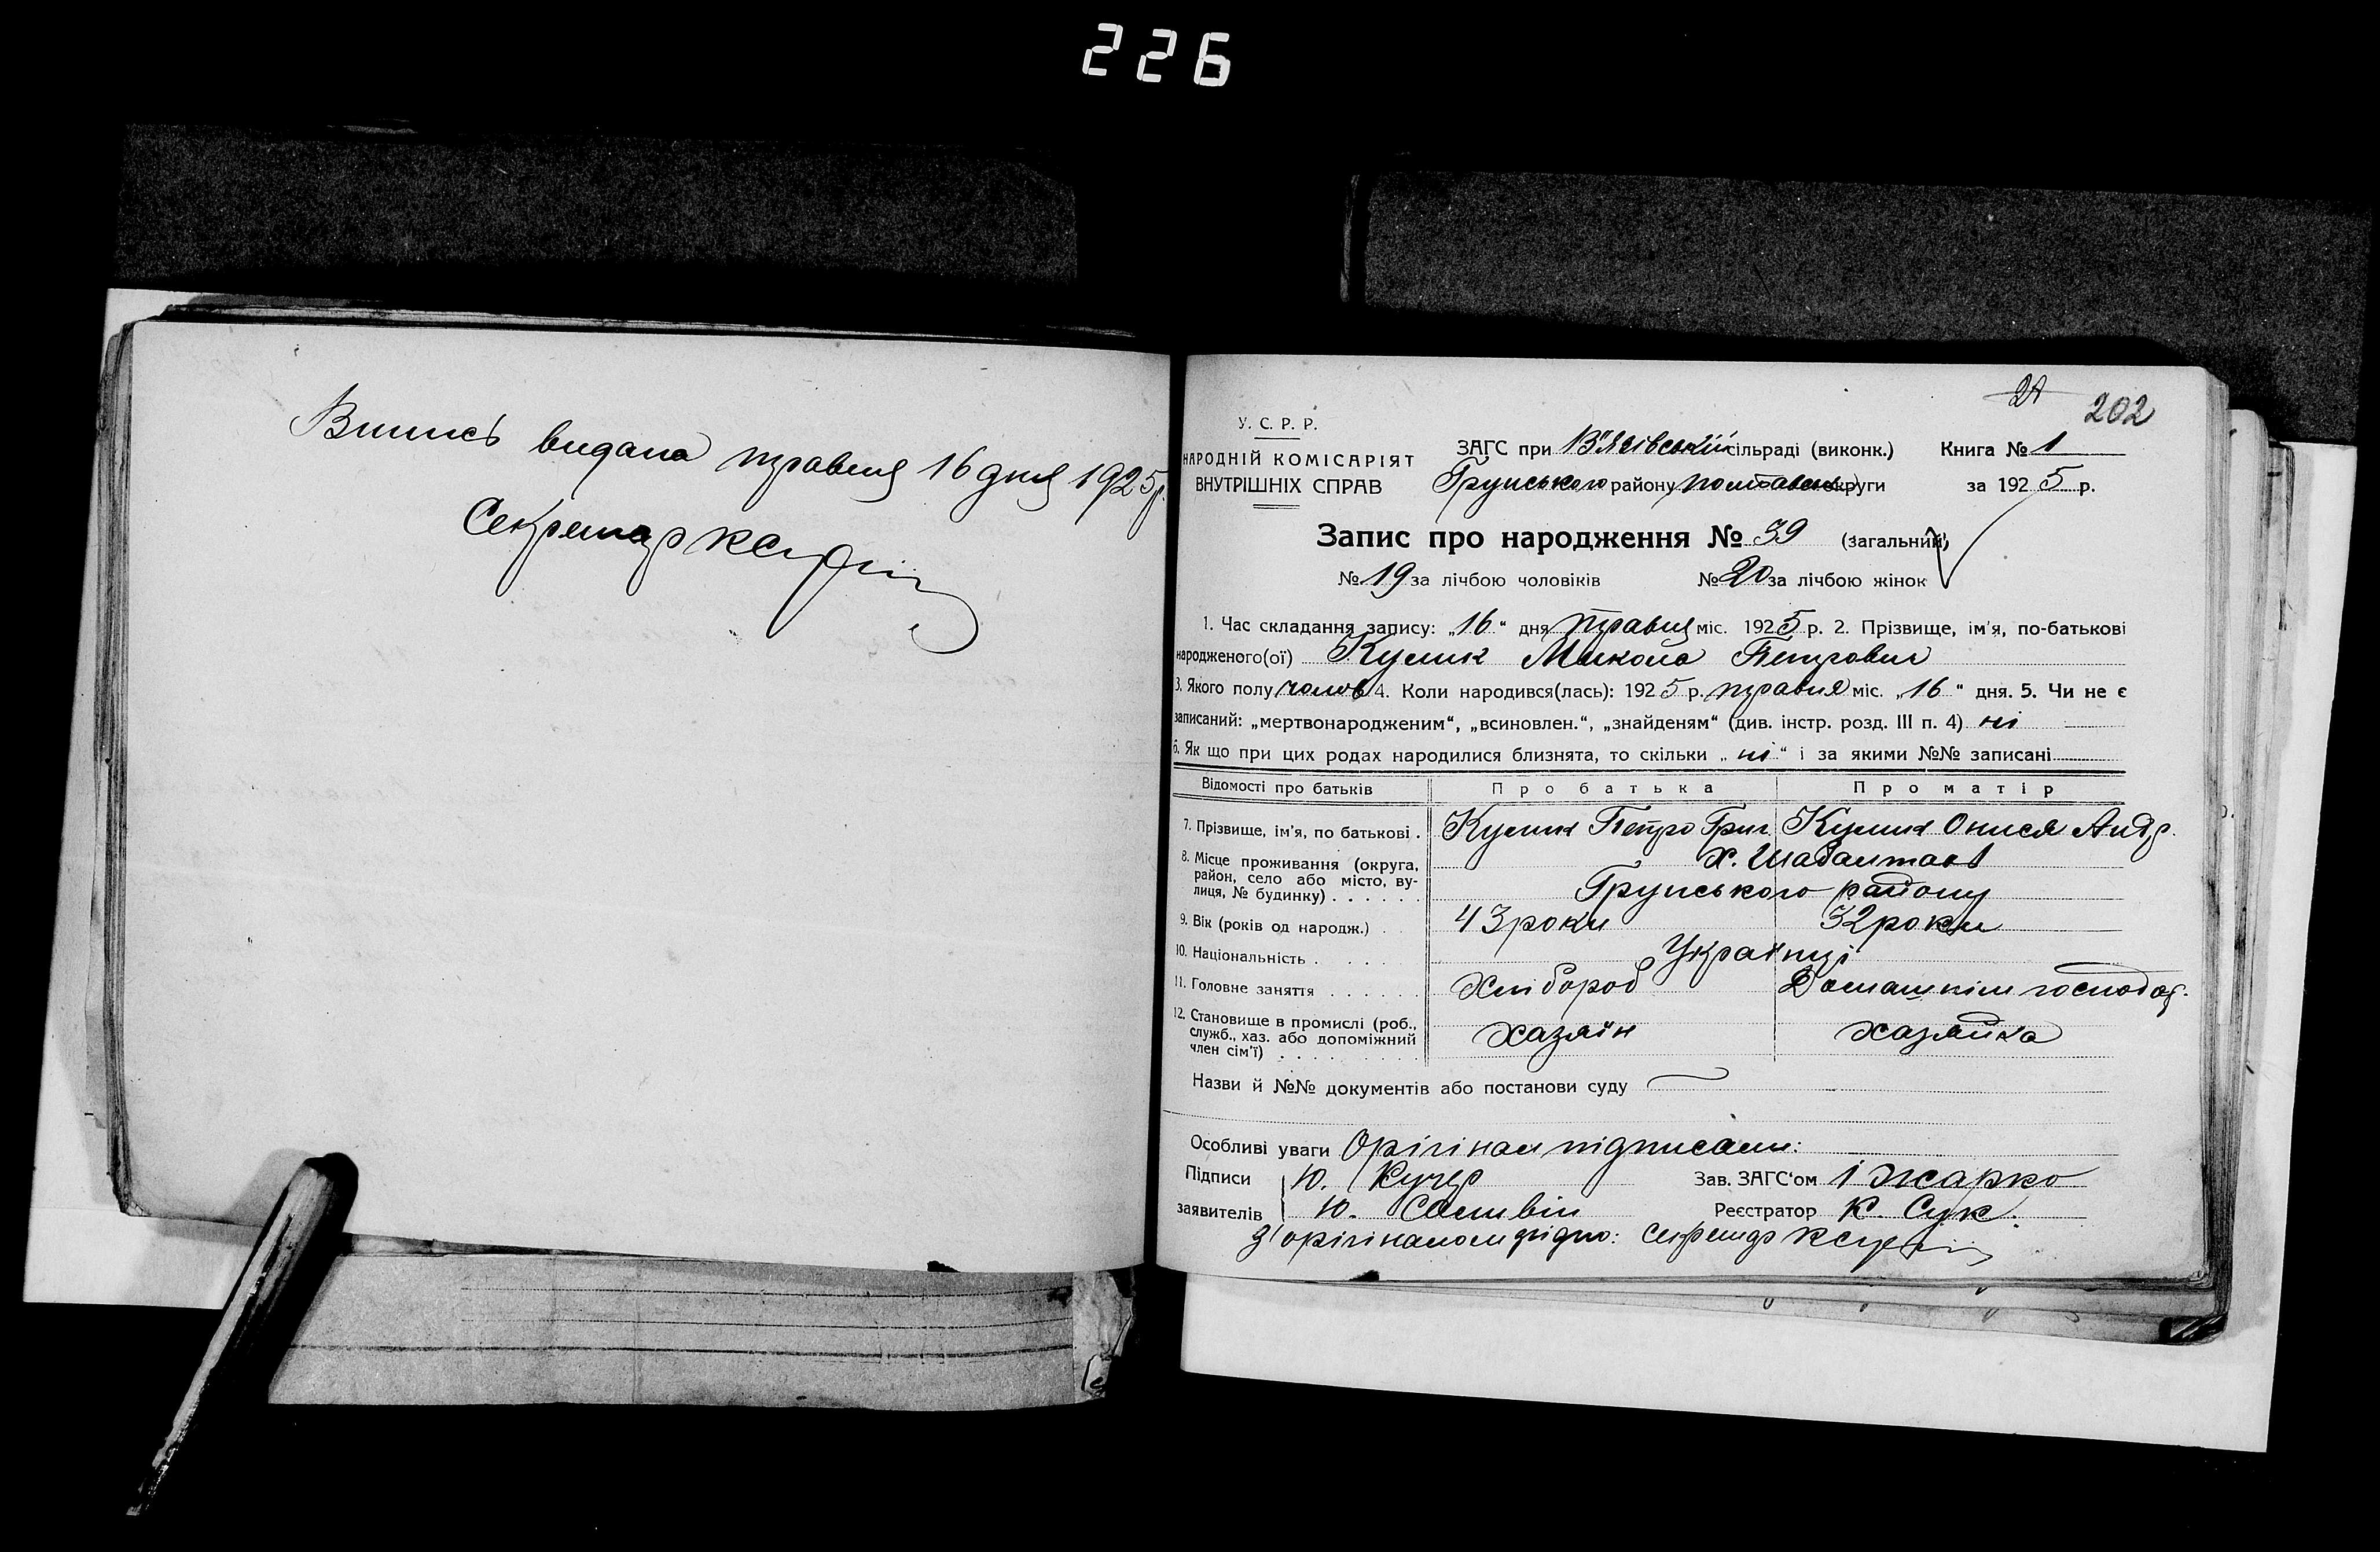 226
Випись видана травня 16 дня 1925 р.
Секретар
24 202
У. С. Р. Р.
НАРОДНІЙ КОМІСАРІЯТ
ВНУТРІШНІХ СПРАВ
ЗАГС при В'язівській сільраді (виконк.) Книга № 1
Грунського району Полтавськ округи за 1925 р.
Запис про народження № 39 (загальний)
№ 19 за лічбою чоловіків № 20 за лічбою жінок
1. Час складання запису: „16“ дня травня міс. 1925 р. 2. Прізвище, ім'я, по-батькові
народженого(ої) Кулик Микола Петрович
3. Якого полу чолов 4. Коли народився(лась): 1925 р. травня міс. „16“ дня. 5. Чи не є
записаний: „мертвонародженим“, „всиновлен.“, „знайденям“ (див. інстр. розд. III п. 4) ні
6. Як що при цих родах народилися близнята, то скільки „ні“ і за якими №№ записані
Відомості про батьків Про батька Про матір
7. Прізвище, ім'я, по батькові . Кулик Петро Григ. Кулик Онися Андр.
8. Місце проживання (округа,
район, село або місто, ву-
лиця, № будинку) . . . . . . х. Шабалтаєв
Грунського району
9. Вік (років од народж.) . . 43 роки 32 роки
10. Національність . . . . Українці
11. Головне заняття . . . . . . Хлібороб Домашнім господар.
12. Становище в промислі (роб.,
служб., хаз. або допоміжний
член сім'ї) . . . . . . . . хазяїн хазяйка
Назви й №№ документів або постанови суду
Особливі уваги Орігінал підписали:
Підписи Ю. Кучер Зав. ЗАГС'ом І Жарко
заявителів Ю. Реєстратор К. Сук.
З орігіналом згідно: Секретар